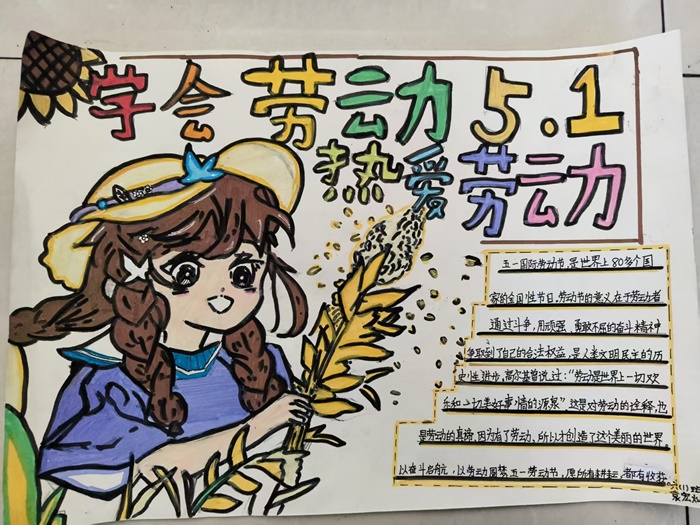 学会劳动 5.1
热爱劳动
五一国际劳动节,是世界上80多个国
家的全国性节日,劳动节的意义在于劳动者
通过斗争,用顽强、勇敢不屈的奋斗精神
争取到了自己的合法权益,是人类文明民主的历
史性进步,高尔基曾说过:“劳动是世界上一切欢
乐和一切美好事情的源泉”这是对劳动的诠释,也
是劳动的真谛,因为有了劳动,所以才创造了这个美丽的世界,
以奋斗启航,以劳动圆梦,五一劳动节,愿所有耕耘,都有收获
六(1)班